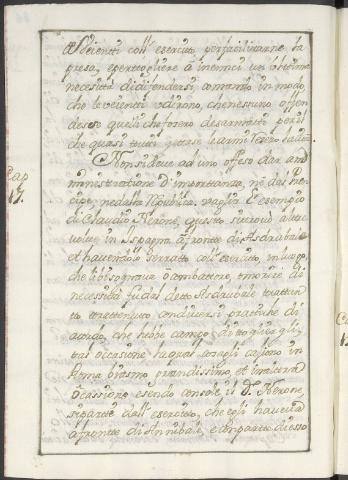 a Veienti coll' esercito per facilitarne la
presa, e per togliere à inemici un' ultima
necessità di difendersi, comandò in modo,
che le Veienti udirono, che nessuno offen
desse quelli che fosero desarmati per il
che quasi tutti gittate le armi
Cap
17.
Non si deve ad uno offeso dare am
ministratione d' importanza, nè dal Pre
cipe, ne dalla Republica, vaglia l' esempio
di Claudio Nerone, questo
in Ispagna à fronte di Asdrubale
et havendolo serrato coll' esercito, in luogo
che li bisognava ò combattere, ò morire di
necessità fù dal detto Asdrubale
to trattenuto con diverse pratiche di
acordo, che hebbe campo di
tal occasione la qual cosa gli cagionò in
Roma biasmo grandissimo, et in altra
occasione esendo console il d.º Nerone
si partì dall' esercito, che egli haveva
à fronte di Annibale, e con parte di esso